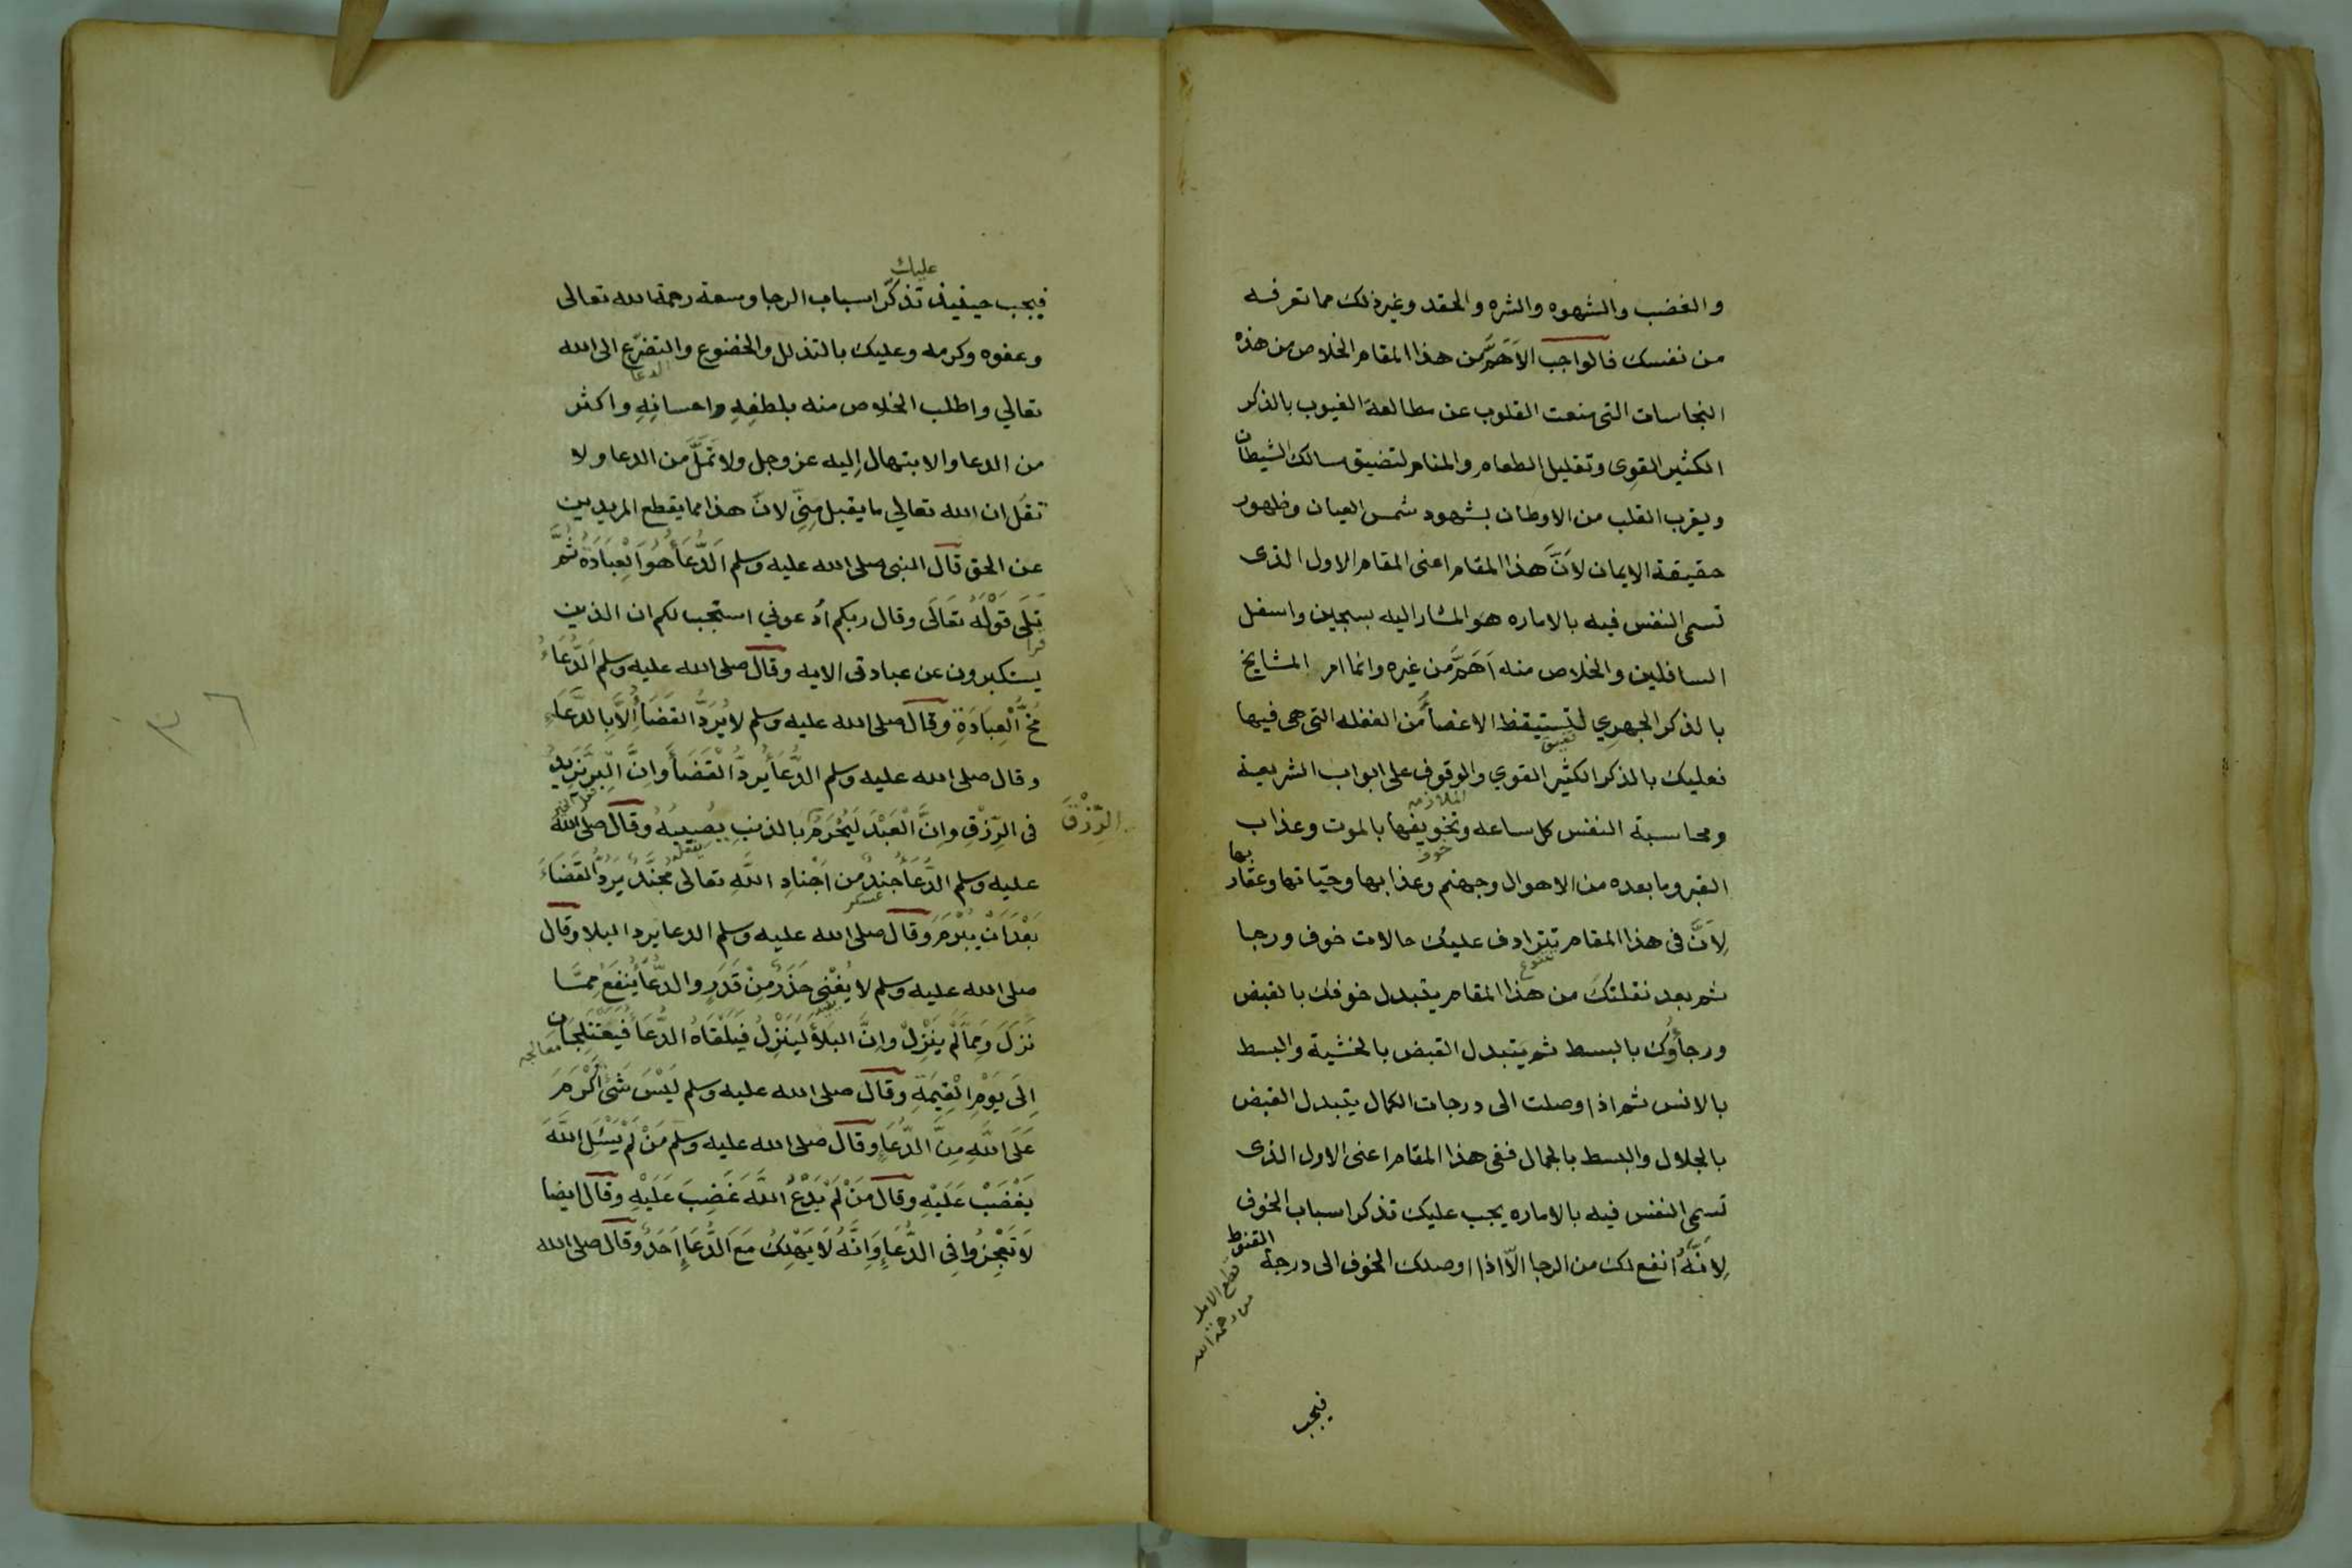 والغضب والشهوه والشره والحقد وغير ذلك مما تعرفه
من نفسك فالواجب الاَهَمُّ من هذا المقام الخلاص من هذه
النجاسات التى منعت القلوب عن مطالعة الغيوب بالذكر
الكثير القوى وتقليل الطعام والمنام لتضيق مسالك الشيطان
ويقرب القلب من الاوطان بشهود شمس العيان وظهور
حقيقة الايمان لاَنَّ هذا المقام اعنى المقام الاول الذى
تسمى النفس فيه بالاماره هو المشار اليه بسجين واسفل
السافلين والخلاص منه اَهَمُّ من غيره وانما امر المشايخ
بالذكر الجهري لتستيقظ الاعضأُ من الغفله التى هى فيها
فعليك بالذكر الكثير القوي والوقوف على ابواب الشريعة
الملازمه
ومحاسبة النفس كل ساعه وتخويفها بالموت وعذاب
خوف
القبر وما بعده من الاهوال وجهنم وعذابها وحيّاتها وعقاربها
لِاَنَّ فى هذا المقام تترادف عليك حالات خوف ورجا
ثم بعد نقلتك من هذا المقام يتبدل خوفك بالقبض
ورجأوك بالبسط ثم يتبدل القبض بالخشية والبسط
بالانس ثم اذا وصلت الى درجات الكمال يتبدل القبض
بالجلال والبسط بالجمال ففى هذا المقام اعنى الاول الذى
تسمى النفس فيه بالاماره يجب عليك تذكر اسباب الخوف
لِاَنَّهُ انفع لك من الرجا الّا اذا اوصلك الخوف الى درجة القنوط
قطع الامل
من رحمة الله
فيجب
عليك
فيجب حينيذ تذكّر اسباب الرجا وسعة رحمة الله تعالى
وعفوه وكرمه وعليك بالتذلل والخضوع والتضرّع الى الله
الدعا
تعالي واطلب الخلاص منه بلطفِهِ واحسانِهِ واكثر
من الدعا والابتهال اِليه عز وجل ولا تَمَلَّ من الدعا ولا
تقُل ان الله تعالي ما يقبل مِنّي لانّ هذا مما يقطع المريدين
عن الحق قال النبى صلى الله عليه وسلم اَلدُّعَأُ هُوَ الْعِبَادَةُ ثُمَّ
تَلَى قَوْلَهُ تعَالَى وقال ربكم اُدعوني استجب لكم ان الذين
قرا
يستكبرون عن عبادتى الايه وقال صلى الله عليه وسلم الدُّعَاءُ
مُخُّ الْعِبَادَةِ وقال صلى الله عليه وسلم لا يُرَدُّ القَضَأُ اِلاَّ بِالدُّعَاءِ
وقال صلى الله عليه وسلم الدُّعَأُ يُردُّ الْقَضَأَ وَاِنَّ الْبِرَّ يَزِيدُ
فى الرِّزْقِ وَاِنَّ الْعَبْدَ لَيُحْرَمُ بالذنبِ يُصِيبُهُ وقال صلى الله
الرِّزْقَ
عليه وسلم الدُّعَأُ جُندٌ من اَجْنادِ اللَّهِ تعالى مُجَنَّدٌ يَرُدُّ القَضَاءَ
عسكر
بَعْدَ اَنْ يُبْرَمَ وقال صلى الله عليه وسلم الدعا يرد البلا وقال
صلى الله عليه وسلم لا يُغْنِى حَذَرٌ مِنْ قَدَرٍ والدُّعَأُ يَنفَعُ مِمَّا
نَزَلَ وَمِمَّا لَمْ يَنْزِلْ وانَّ البَلأَ لَيَنْزِلُ فَيَلْقَاهُ الدُّعَأُ فَيَعْتَلِجَانِ
معالجه
اِلَى يَوْمِ الْقِيَمَةِ وقال صلى الله عليه وسلم لَيْسَ شَئٌ اَكْرَمَ
عَلَى اللَّهِ مِنَ الدُّعَاءِ وقال صلى الله عليه وسلّم مَنْ لَمْ يَسْئَلِ اللَّهَ
يَغْضَبْ عَلَيْهِ وقال مَنْ لَمْ يَدْعُ اللَّهَ غَضِبَ عَلَيْهِ وقال ايضا
لاَ تَعْجِزُوا فِى الدُّعَاءِ وَاِنَّهُ لاَ يَهْلِكُ مَعَ الدُّعَاءِ اَحَدٌ وقال صلى الله